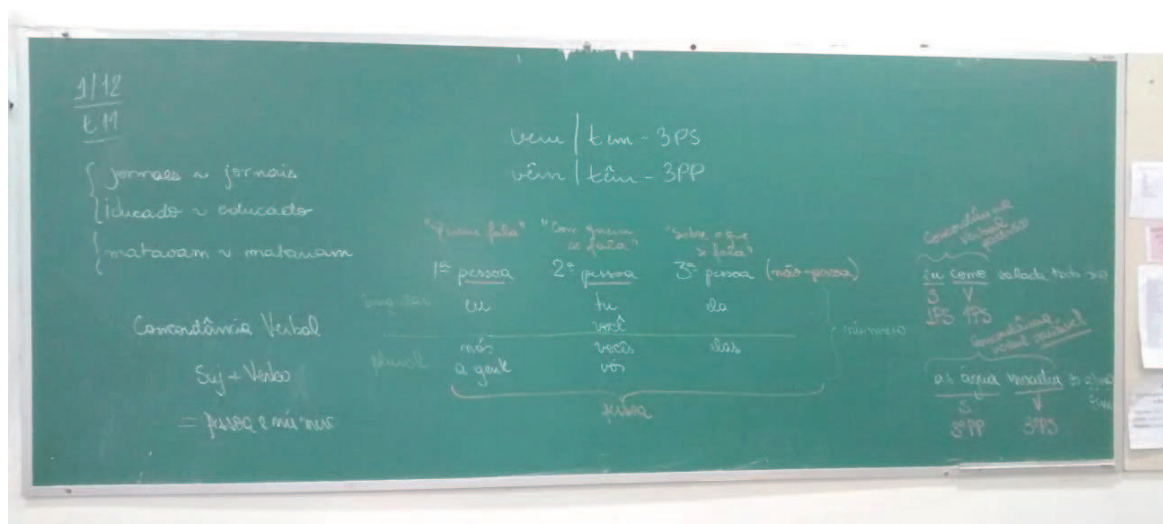 1/12
t 11
jornaes ~ jornais
iducado ~ educado
matavam ~ matavam
Concordância Verbal
Suj + Verbo
= pessoa e número
vem | tem - 3PS
vêm | têm - 3PP
"Quem fala" "Com quem se fala" "Sobre o que se fala"
1ª pessoa 2ª pessoa 3ª pessoa (não-pessoa)
singular eu tu ela
você
plural nós vocês elas
a gente vós
número
pessoa
Concordância
verbal
eu come salada todo
S V
1PS 1PS
Concordância
verbal variável
as água
S V
3ªPP 3ªPS